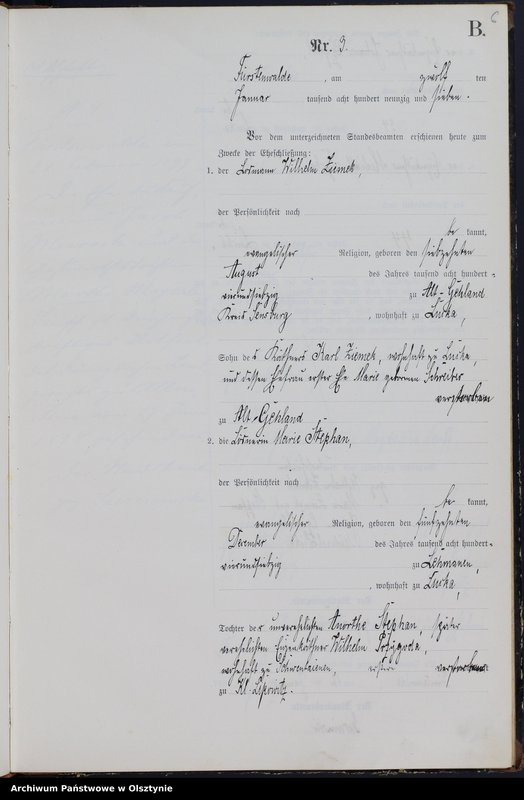 B.
6
Nr. 3.
Fürstenwalde, am zwölf ten
Januar tausend acht hundert neunzig und sieben.
Vor dem unterzeichneten Standesbeamten erschienen heute zum
Zwecke der Eheschließung:
1. der Losmann Wilhelm Ziemek,
der Persönlichkeit nach
be kannt,
evangelischer Religion, geboren den siebzehnten
August des Jahres tausend acht hundert-
vierundsiebzig zu Alt-Gehland
Kreis Sensburg, wohnhaft zu Lucka,
Sohn des Käthners Karl Ziemek, wohnhaft zu Lucka,
und dessen Ehefrau erster Ehe Marie geborenen Schreiber
verstorben
zu Alt-Gehland
2. die Losnerin Marie Stephan,
der Persönlichkeit nach
be kannt,
evangelischer Religion, geboren den fünfzehnten
Dezember des Jahres tausend acht hundert-
vierundsiebzig zu Lehmanen,
, wohnhaft zu Lucka,
Tochter der unverehelichten Anorthe Stephan, später
verehelichten Eigenkäthner Wilhelm
wohnhaft zu, erstere verstorben
zu Kl. Leskowitz.
Archiwum Państwowe w Olsztynie